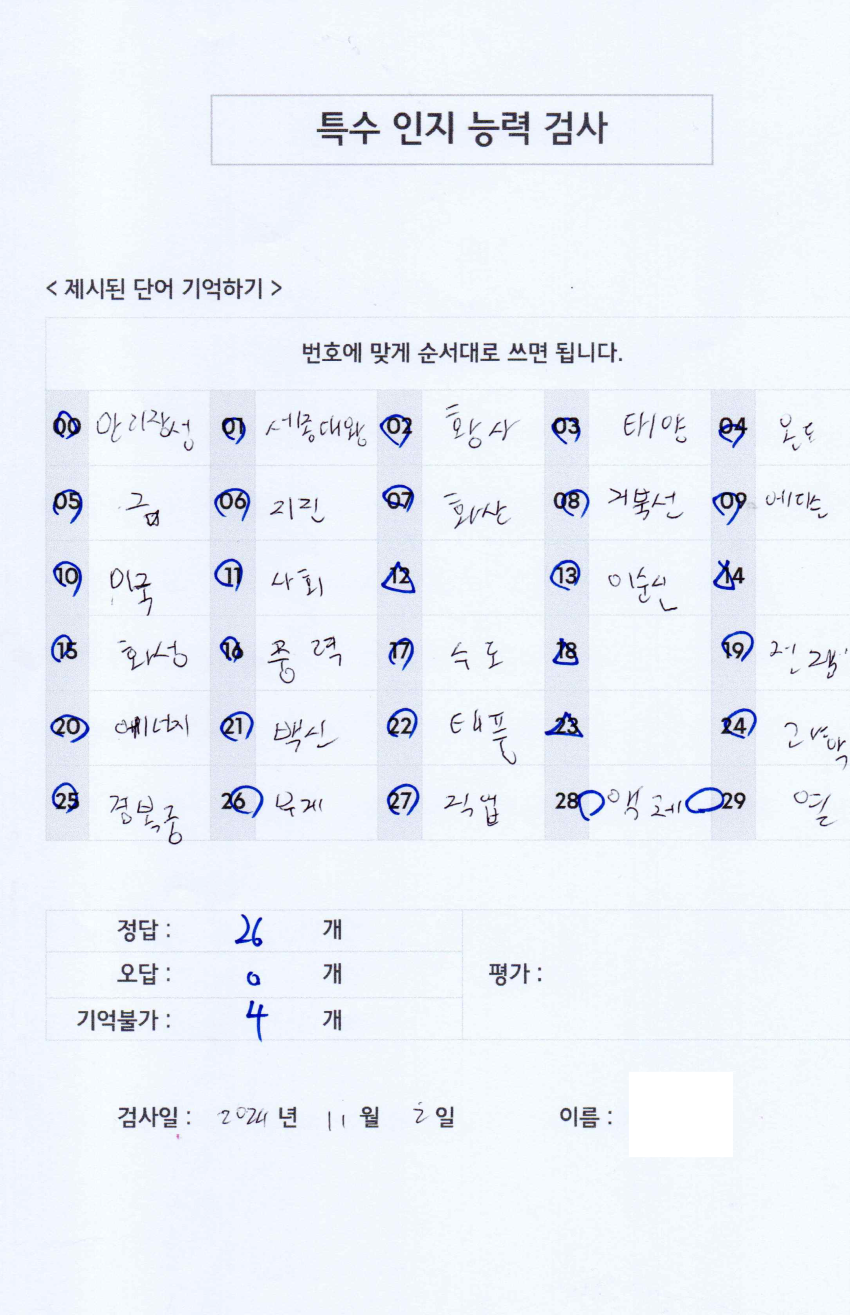 특수 인지 능력 검사
< 제시된 단어 기억하기 >
번호에 맞게 순서대로 쓰면 됩니다.
00 만리장성 01 세종대왕 02 황사 03 태양 04 온도
05 금 06 지진 07 화산 08 거북선 09 에디슨
10 미국 11 사회 12 13 이순신 14
15 화성 16 풍력 17 수도 18 19 전쟁
20 에너지 21 백신 22 태풍 23 24
25 경복궁 26 무게 27 직업 28 액체 29 열
정답 : 26 개
오답 : 0 개 평가 :
기억불가 : 4 개
검사일 : 2024 년 11 월 2 일 이름 :